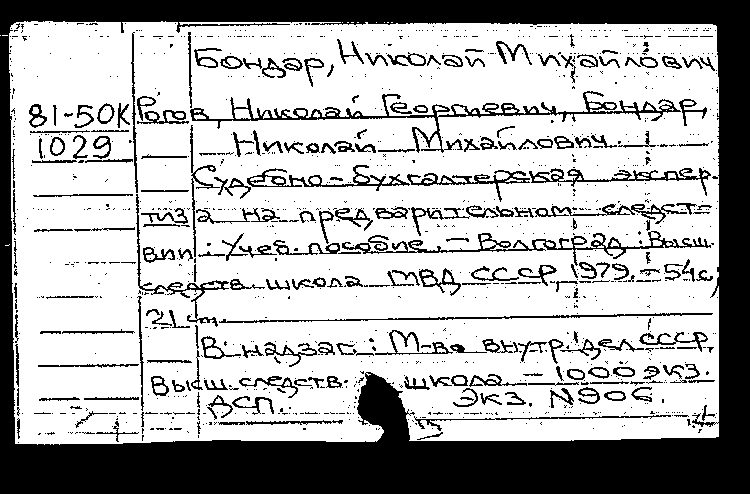 Бондар, Николай Михайлович
81-50К Рогов, Николай Георгиевич, Бондар,
1029 Николай Михайлович.
Судебно-бухгалтерская экспер-
тиза на предварительном следст-
вии: Учеб. пособие. - Волгоград: Высш.
следств. школа МВД СССР, 1979. - 54с;
21 см.
В надзаг.: М-во внутр. дел СССР.
Высш. следств. школа - 1000 экз.
ДСП. Экз. N906.